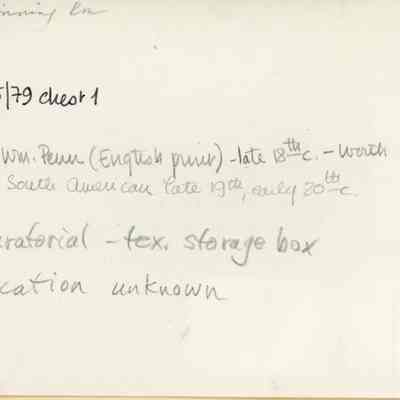 5/79 chest 1
Wm. Penn (English print) - late 18th c. - worth
South American late 19th, early 20th c.
ratorial - tex. storage box
cation unknown